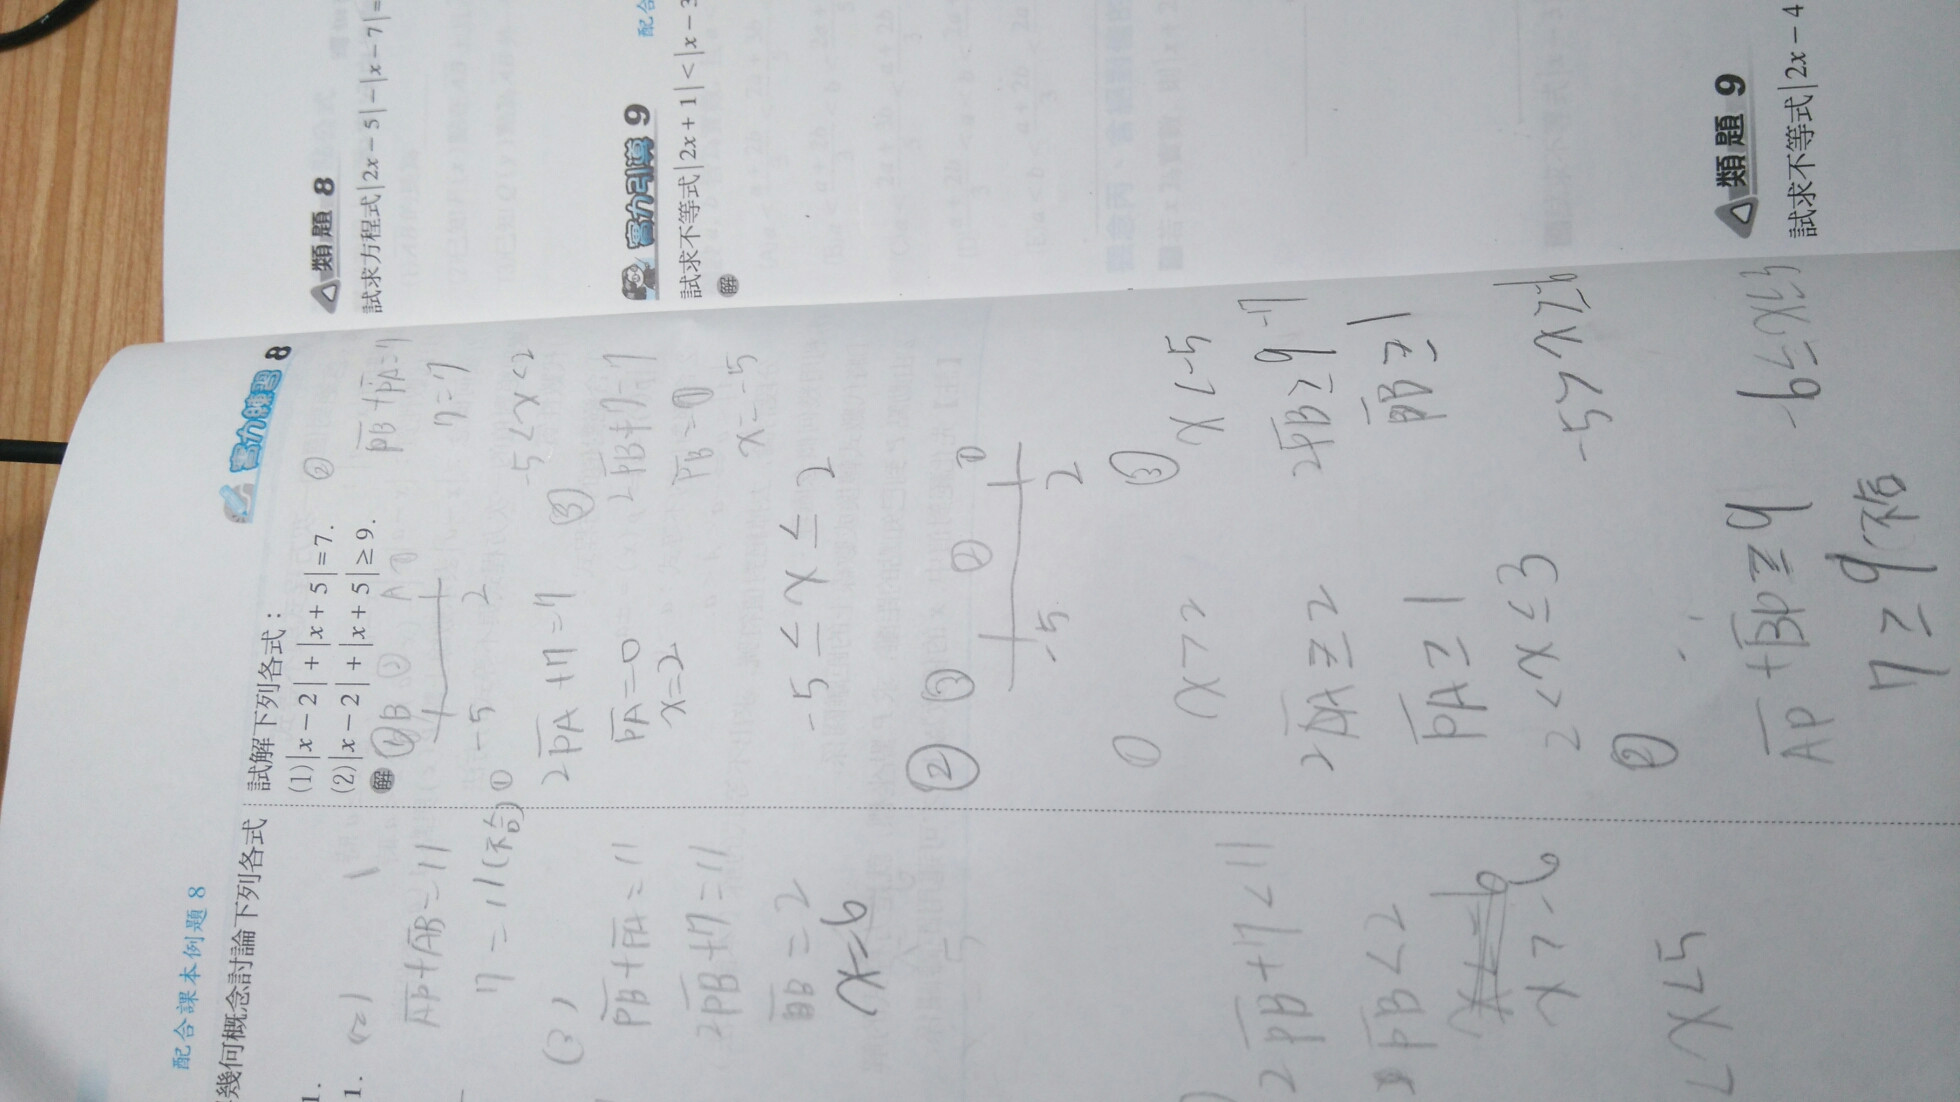 配合課本例題 8
幾何概念討論下列各式
1.
1.
(2)
AP+AB=11
7=11(不合)
(3)
PB+PA=11
2PB+7=11
PB=2
x=6
2PB+7<11
PB<2
x>-6
x<5
實力練習 8
試解下列各式：
(1)|x-2|+|x+5|=7.
(2)|x-2|+|x+5|≥9.
解
B ② A ①
-5 2
①
2PA+7=7
PA=0
x=2
②
PB+PA=7
7=7
-5<x<2
③
2PB+7=7
PB=0
x=-5
-5≤x≤2
②
③ ② ①
-5 2
①
x>2
2PA≥2
PA≥1
2<x≤3
③
x<-5
2PB≥9-7
PB≥1
-5>x≥-6
②
AP+BP≥9
7≥9(不合)
-6≤x≤3
類題 8
試求方程式|2x-5|-|x-7|=
配合
實力引導 9
試求不等式|2x+1|<|x-3
解
類題 9
試求不等式|2x-4